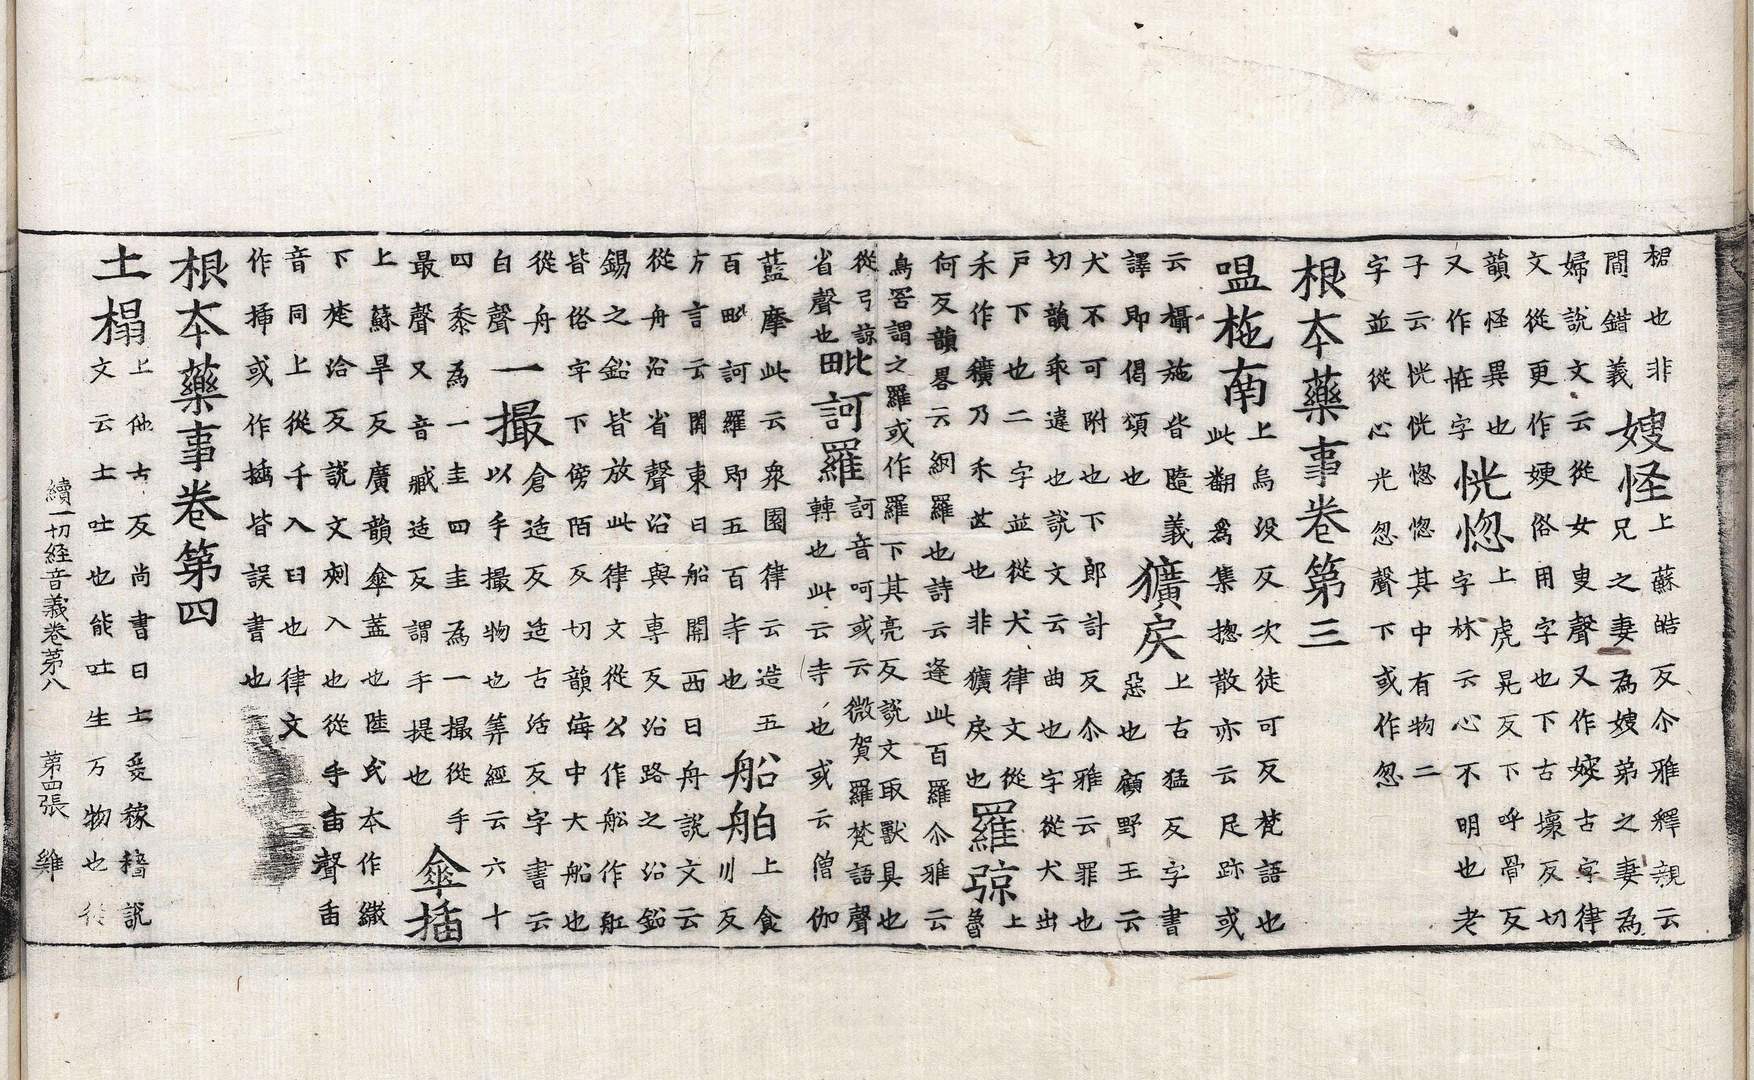 梠也非
間錯義
嫂怪
上蘇皓反尒雅釋親云
兄之妻為嫂弟之妻為
婦說文云從女叟聲又作㛮古字律
文從更作㛐俗用字也下古壞反切
韻怪異也
又作恠字
恍惚
上虎晃反下呼骨反
字林云心不明也老
子云恍恍惚惚其中有物二
字並從心光忽聲下或作忽
根本藥事卷第三
嗢柂南
上烏沒反次徒可反梵語也
此翻為集揔散亦云足跡或
云攝施皆隨義
譯即偈頌也
獷戾
上古猛反字書
惡也顧野王云
犬不可附也下郎計反尒雅云罪也
切韻乖違也說文云曲也字從犬出
戶下也二字並從犬律文從
禾作穬乃禾芒也非獷戾也
羅弶
上
魯
何反韻畧云網羅也詩云逢此百羅尒雅云
鳥罟謂之羅或作羅下其亮反說文取獸具也
從弓諒
省聲也
毗訶羅
訶音呵或云微賀羅梵語聲
轉也此云寺也或云僧伽
藍摩此云衆園律云造五
百毗訶羅即五百寺也
船舶
上食
川反
方言云關東曰船關西曰舟說文云
從舟㳂省聲㳂與專反㳂路之㳂鉛
錫之鉛皆放此律文從公作舩作舡
皆俗字下傍陌反切韻海中大船也
從舟
白聲
一撮
倉造反造古活反字書云
以手撮物也筭經云六十
四黍為一圭四圭為一撮從手
最聲又音臧造反謂手提也
傘插
上蘇旱反廣韻傘蓋也陸氏本作繖
下楚洽反說文刺入也從手臿聲臿
音同上從千入臼也律文
作揷或作㨶皆誤書也
根本藥事卷第四
土榻
上他古反尚書曰土爰稼穡說
文云土吐也能吐生万物也從
續一切経音義卷苐八 第四張 雞